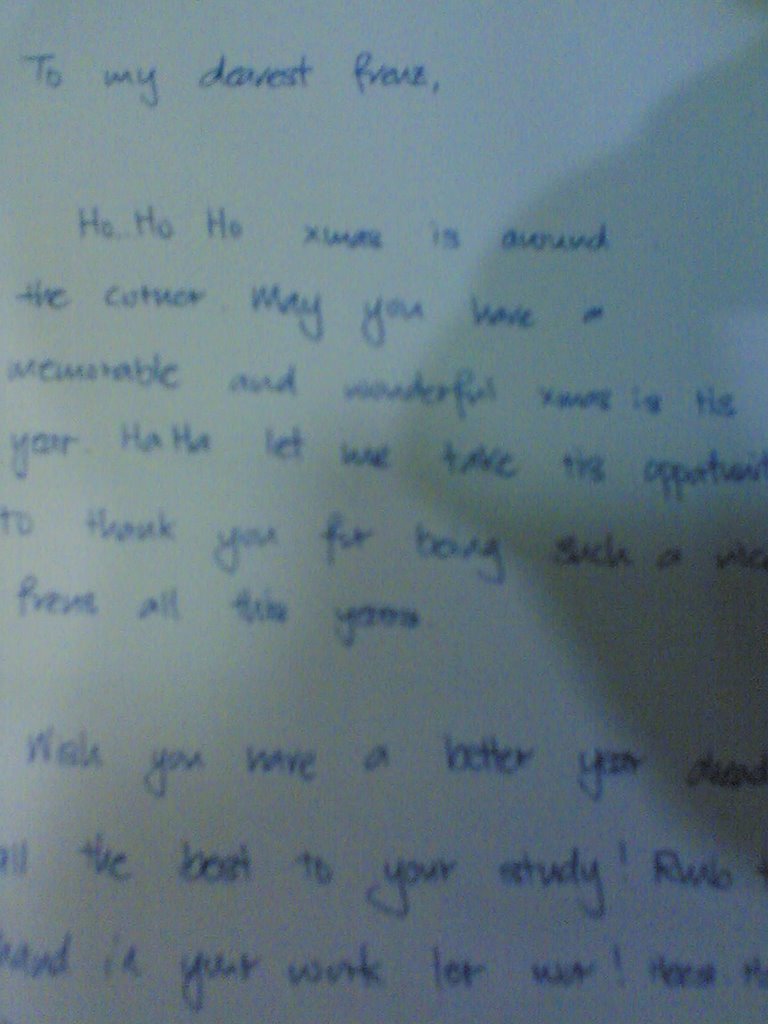 To my dearest frenz,
Ho..Ho Ho xmas is around
the corner. May you have a
memorable and wonderful xmas is tis
year. HaHa let me take tis oppotunit
to thank you for being such a nice
frens all this years
Wish you have a better year ahead
all the best to your study! Rmb t
hand in your work lor wor!